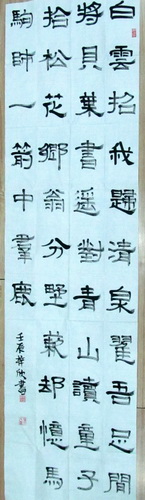 白雲招我歸清泉翟吾足閒
將貝葉書遥對青山讀童子
拾松花鄉翁分野蔌却憶馬
駒師一箭中羣鹿
壬辰書